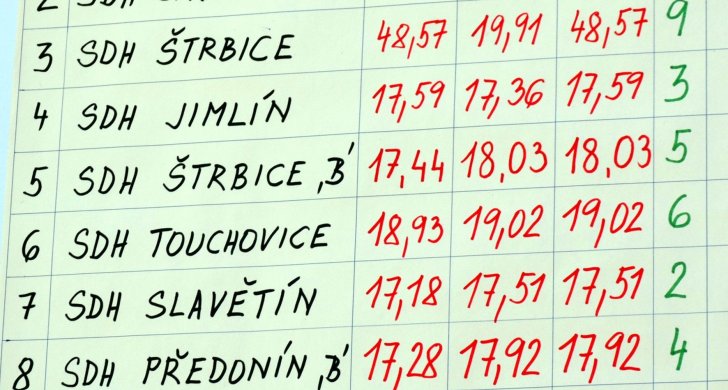 2 SDH
3 SDH ŠTRBICE 48,57 19,91 48,57 9
4 SDH JIMLÍN 17,59 17,36 17,59 3
5 SDH ŠTRBICE ,B' 17,44 18,03 18,03 5
6 SDH TOUCHOVICE 18,93 19,02 19,02 6
7 SDH SLAVĚTÍN 17,18 17,51 17,51 2
8 SDH PŘEDONÍN ,B' 17,28 17,92 17,92 4